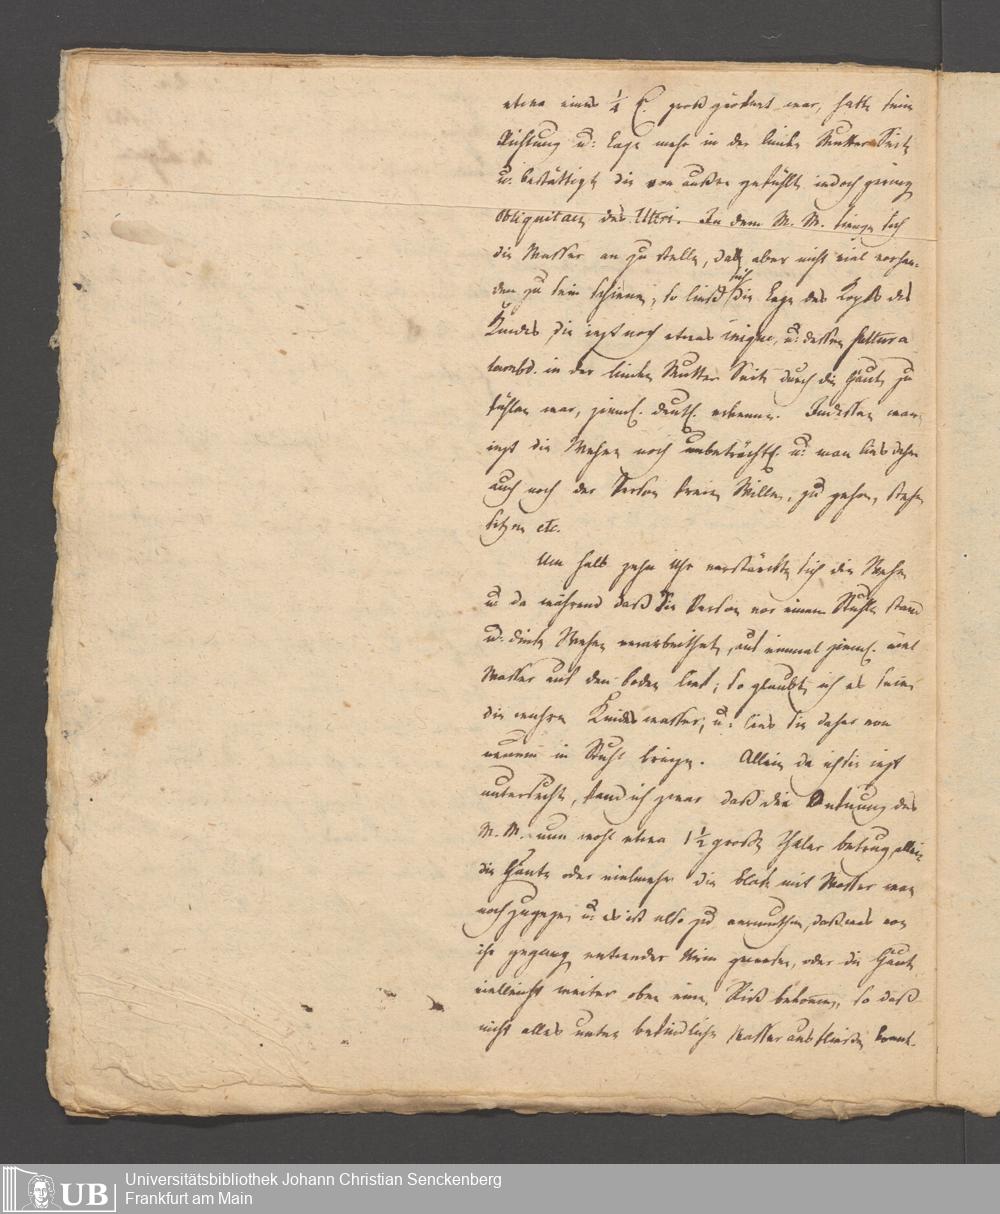 etwa eines 1/4 C. groß geöfnet war, hatte seine
Richtung u: Lage mehr in der linken Mutter Seite
u. bestättigte die von außen gefühlte iedoch geringe
obliquitaet des Uteri. In dem M. M. fiengen sich
die Wasser an zu stellen, da aber nicht viel vorhan-
den zu sein schienen, so ließ sich die Lage des Kopfs des
Kindes, die iezt noch etwas inique, u: dessen suttura
lambd. in der linken Mutter Seite durch die Häute zu
fühlen war, zieml. deutl. erkennen. Indessen waren
iezt die Wehen noch unbeträchtl. u: man lies daher
auch noch der Person freien Willen, zu gehen, stehen
sitzen etc.
Um halb zehn Uhr verstärckten sich die Wehen
u: da während daß die Person vor einem Stuhle stand
u: diese Wehen verarbeithete, auf einmal zieml. viel
Wasser auf den boden lief; so glaubte ich es seien
die wahren Kindswasser, u: lies sie daher von
neuem in Stuhl bringen. Allein da ich sie iezt
untersuchte, fand ich zwar daß die Oefnung des
M. M. nun wohl etwa 1 1/2 große Thaler betrug, allein
die Häute oder vielmehr die blase mit Wasser war
noch zugegen u: es ist also zu vermuthen, daß was von
ihr gegangen entweder Urin gewesen, oder die Häute
vielleicht weiter oben einen Riß bekommen, so daß
nicht alles unten befindliche Wasser ausfliesen konnt.
Universitätsbibliothek Johann Christian Senckenberg
Frankfurt am Main
UB